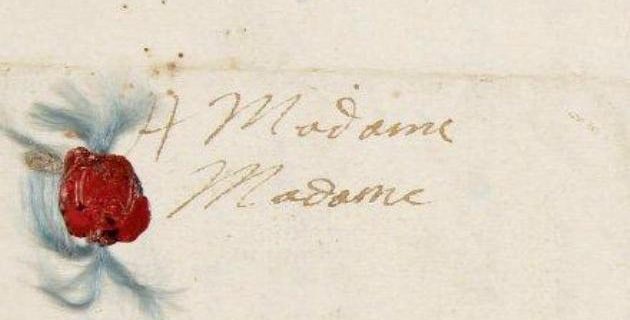 A Madame
Madame